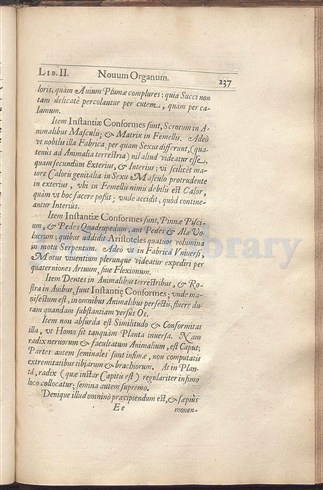 LIB. II. Nouum Organum. 237
loris, quàm Auium Plumæ complures; quia Succi non
tam delicatè percolantur per cutem, quàm per ca-
lamum.
Item Instantiæ Conformes sunt, Scrotum in A-
nimalibus Masculis; & Matrix in Femellis. Adeò
vt nobilis illa Fabrica, per quam Sexus differunt, (qua-
tenùs ad Animalia terrestria) nil aliud videatur esse,
quàm secundùm Exterius, & Interius; vi scilicet ma-
iore Caloris genitalia in Sexu Masculo protrudente
in exterius, vbi in Femellis nimis debilis est Calor,
quàm vt hoc facere possit; vnde accidit, quòd contine-
antur Interiùs.
Item Instantiæ Conformes sunt, Pinnæ Pisci-
um, & Pedes Quadrupedum, aut Pedes & Alæ Vo-
lucrum; quibus addidit Aristoteles quatuor volumina
in motu Serpentum. Adeò vt in Fabricâ Vniuersi,
Motus viuentium plerunque videatur expediri per
quaterniones Artuum, siue Flexionum.
Item Dentes in Animalibus terrestribus, & Ro-
stra in Auibus, sunt Instantiæ Conformes; vnde ma-
nifestum est, in omnibus Animalibus perfectis, fluere du-
ram quandam substantiam versus Os.
Item non absurda est Similitudo & Conformitas
illa, vt Homo sit tanquam Planta inuersa. Nam
radix neruorum & facultatum Animalium, est Caput;
Partes autem seminales sunt infimæ, non computatis
extremitatibus tibiarum & brachiorum. At in Plan-
tâ, radix (quæ instar Capitis est) regulariter infimo
loco collocatur; semina autem supremo.
Denique illud omninò præcipiendum est, & sæpiùs
Ee monen-